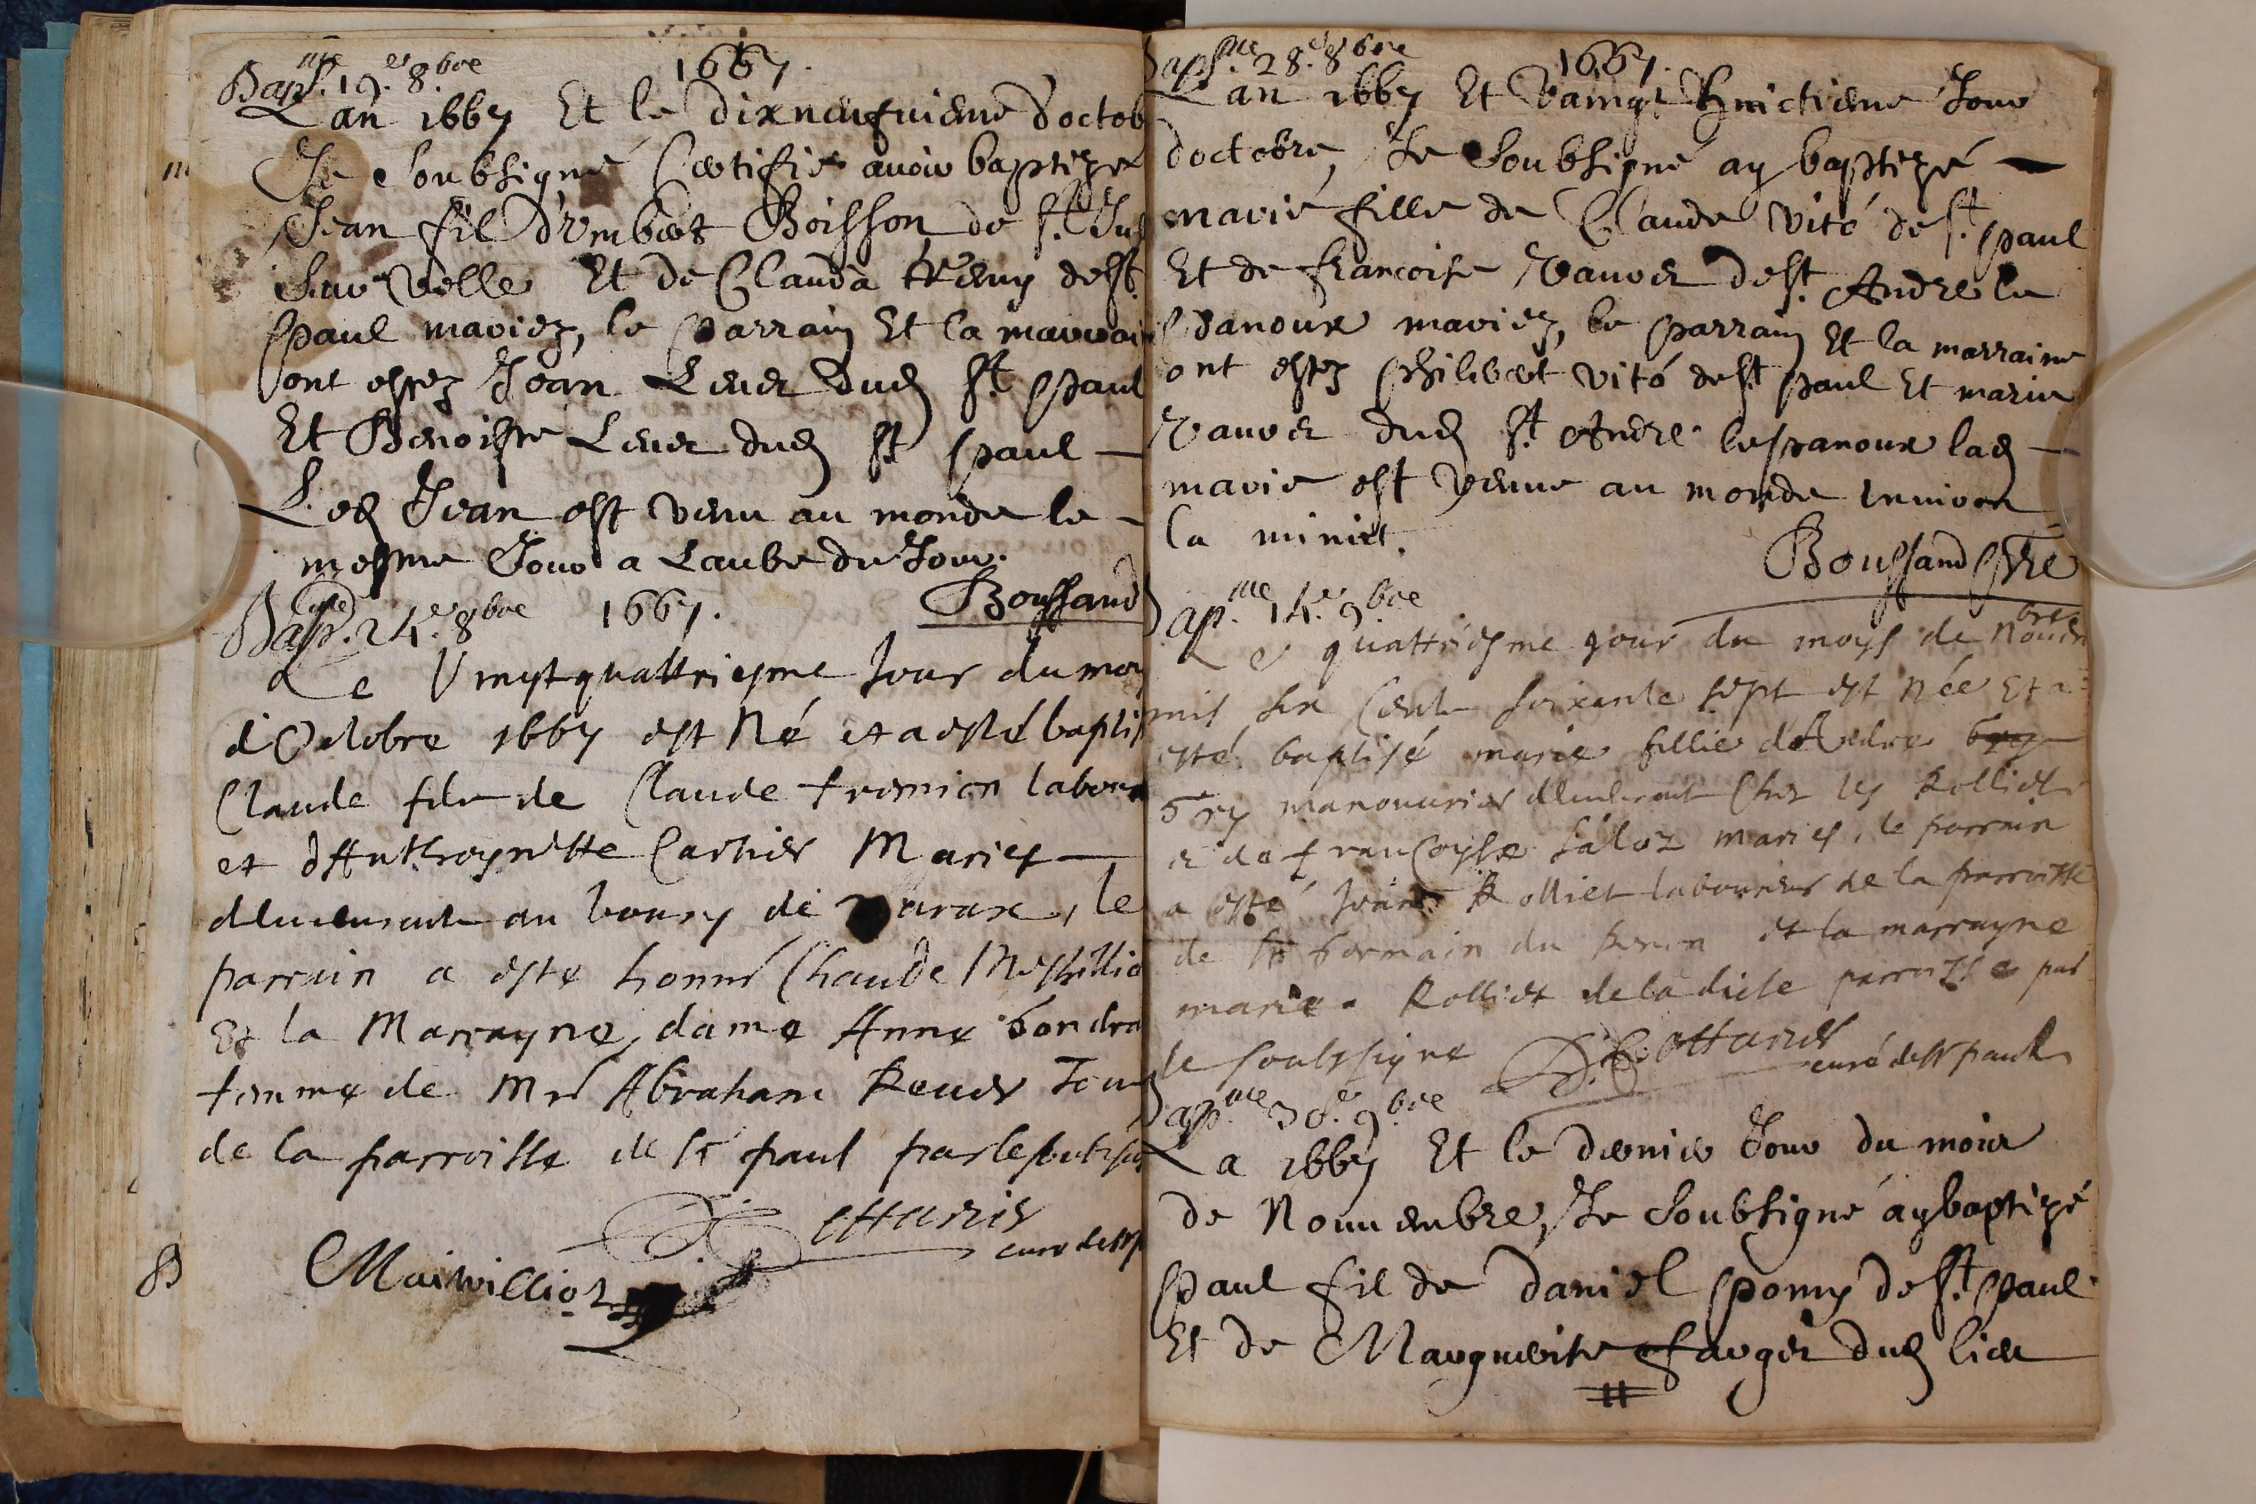 Bap.me 19.e 8.bre 1667.
L'an 1667 Et le dixneufuieme doctob
Je Soubsigné Certifie avoir baptizé
Jean fil d'ymbert Boisson de st. Jus
sur velle Et de Clauda treny de st.
paul mariez, le parrain Et la marrai
ont estez Jean Lever dud st. paul
Et Benoiste Lever dud st paul —
Led Jean est venu au monde le -
mesme Jour a Laube du Jour.
Boussand
Bap.me 24.e 8bre 1667.
Le Vingtquattriesme Jour du moy
d'Octobre 1667 est Né et a esté baptis
Claude fils de Claude tremion labou
et dAnthoynette Cartier Mariez —
demeurant au bourg de varax, le
parrain a este honné Chaude
Et la Marrayne, dame Anne Gondra
femme de Mr Abraham Reuer Tou
de la parroisse de st paul par le soubsig
cottarier
cure de st p
B
Bapt.me 28.e 8bre 1667.
Lan 1667 Et vaingt Huictieme Jour
doctobre, Je Soubsigné ay baptizé —
marie fille de Claude vité de st. paul
Et de francoise vauver de st. Andre le
panoux mariez, le parrain Et la marraine
ont estez philibert vité de st paul Et marie
vauver dud st. Andre le panoux lad —
marie est venue au monde environ
la miniet.
Boussand ptre
Bap.me 14.e 9.bre
Le quattriesme jour du moys de Novembre
mil six Cent soixante sept est née Et a
esté baptisé marie fillie dAndre
Gry manouurier demeurant Chez les Rolliet
et de francoyse mariez, le parrain
a esté Jean Rolliet laboureur de la parroisse
de st Germain du et la marrayne
marie Rolliet de la dicte parroisse par
le soubsigne cottarier
curé de st paul
Bap.me 30.e 9.bre
La 1667 Et le dernier Jour du mois
de Nouuembre, Je Soubsigné ay baptizé
paul fil de daniel pony de st. paul
Et de Marguerite farger dud lieu